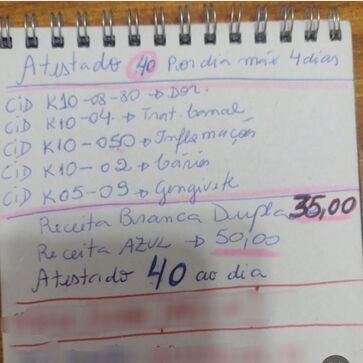 Atestado 40 Por dia máx 4 dias
CID K10-08-80 → Dor.
CID K10-04. → Trat. Canal
CID K10-050 → Inflamações
CID K10-02 → Cáries
CID K05-09 → Gengivite
Receita Branca Dupla 35,00
Receita AZUL → 50,00
Atestado 40 ao dia